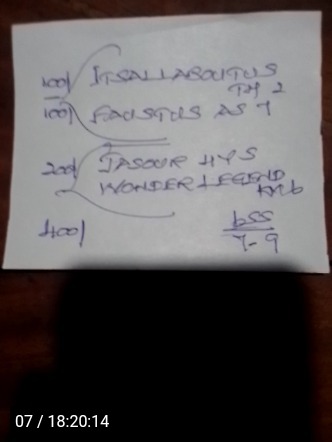 100/ ITSALLABOUTUS
TH 2
100/ FAUSTUS AS 7
200/ JASOUR HYS
WONDERLEGEND
KMb
400/ bSS
7-9
07 / 18:20:14